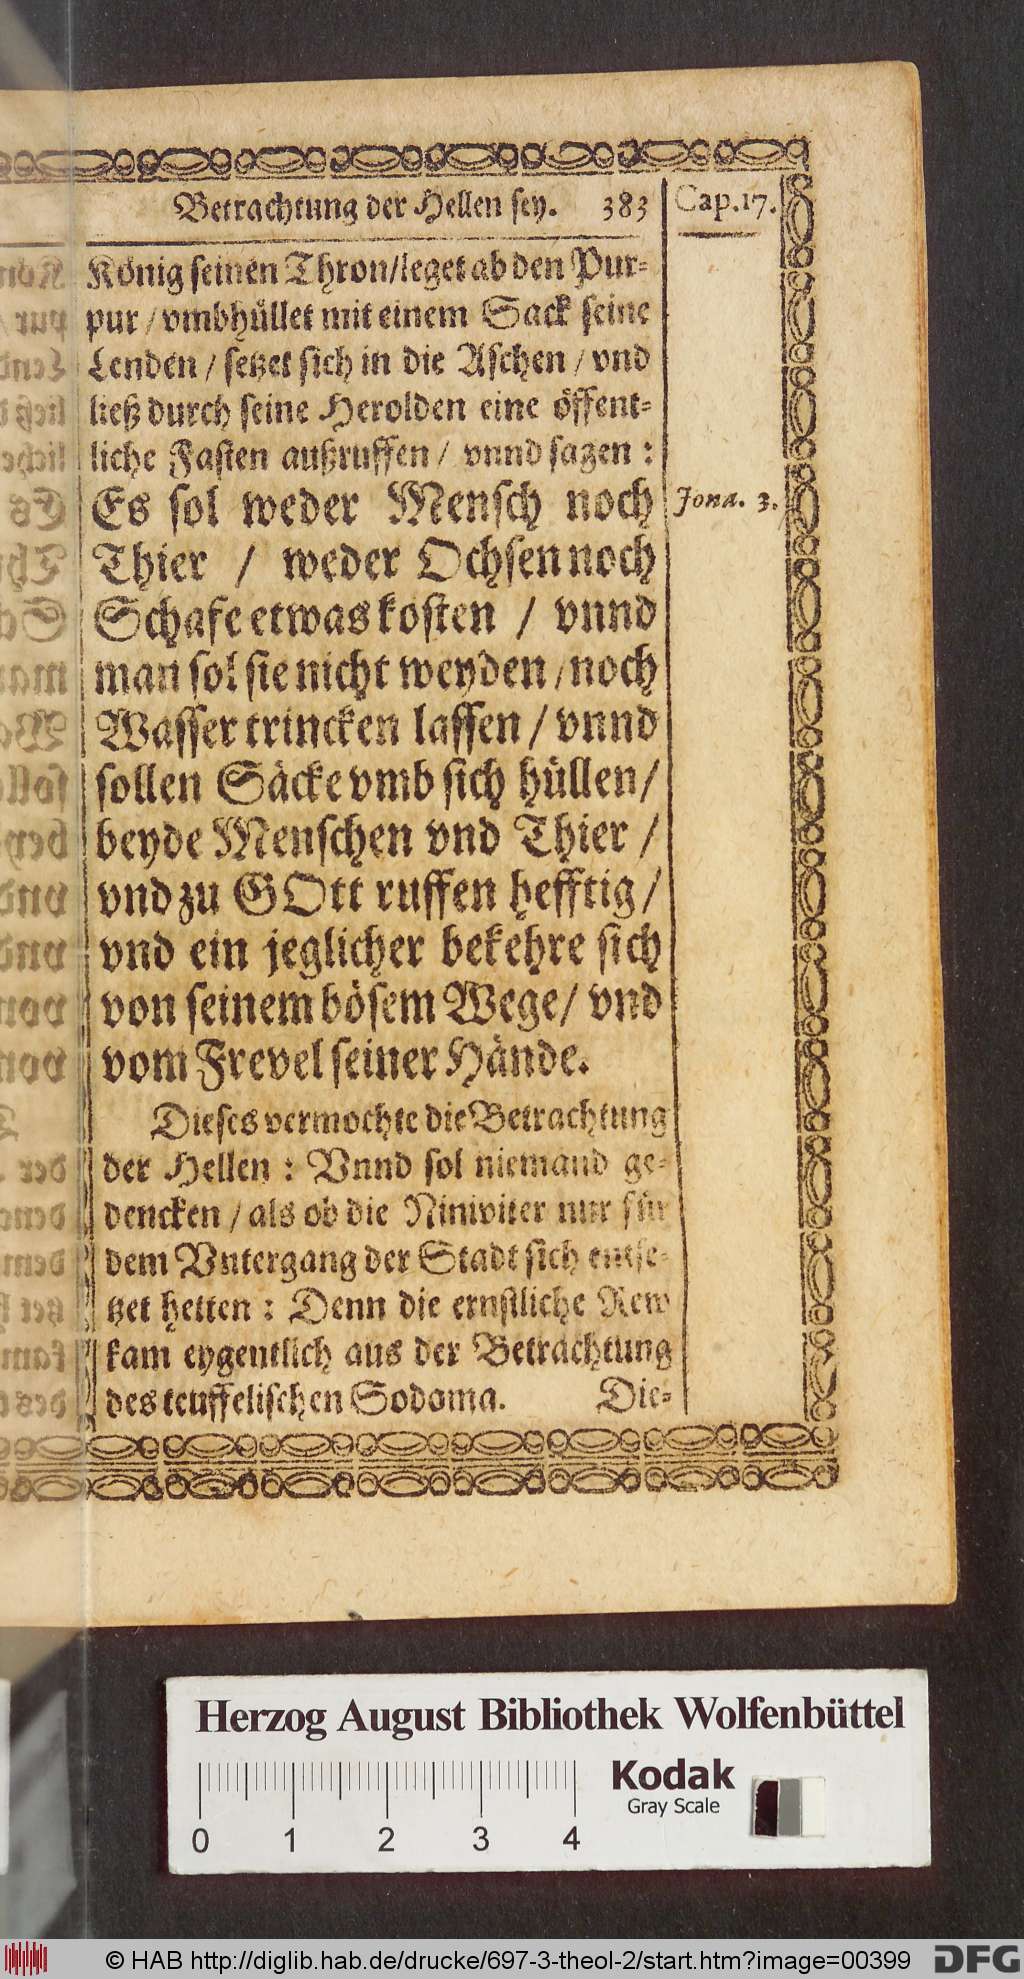 Betrachtung der Hellen sey. 383 Cap.17.
König seinen Thron/leget ab den Pur-
pur / vmbhüllet mit einem Sack seine
Lenden / setzet sich in die Aschen / vnd
ließ durch seine Herolden eine öffent-
liche Fasten außruffen / vnnd sagen :
Es sol weder Mensch noch
Jona. 3.
Thier / weder Ochsen noch
Schafe etwas kosten / vnnd
man sol sie nicht weyden / noch
Wasser trincken lassen / vnnd
sollen Säcke vmb sich hüllen/
beyde Menschen vnd Thier /
vnd zu GOtt ruffen hefftig/
vnd ein jeglicher bekehre sich
von seinem bösem Wege/ vnd
vom Frevel seiner Hände.
Dieses vermochte die Betrachtung
der Hellen : Vnnd sol niemand ge-
dencken / als ob die Niniviter nur für
dem Vntergang der Stadt sich entse-
tzet hetten : Denn die ernstliche Rew
kam eygentlich aus der Betrachtung
des teuffelischen Sodoma. Die-
Herzog August Bibliothek Wolfenbüttel
Kodak
Gray Scale
0 1 2 3 4
© HAB http://diglib.hab.de/drucke/697-3-theol-2/start.htm?image=00399
DFG